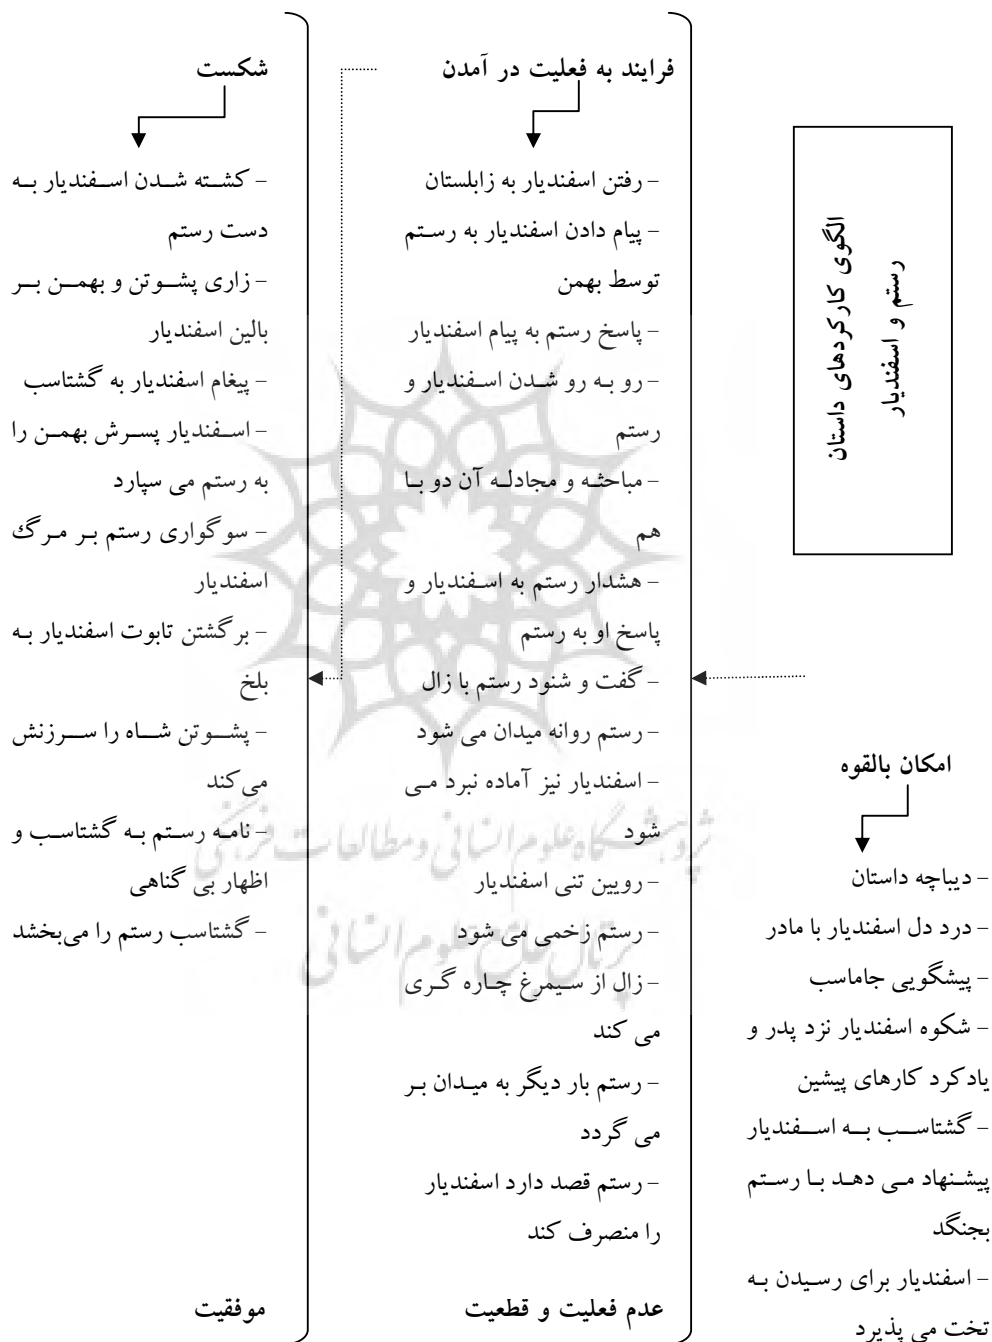 الگوی کارکردهای داستان
رستم و اسفندیار
امکان بالقوه
- دیباچه داستان
- درد دل اسفندیار با مادر
- پیشگویی جاماسب
- شکوه اسفندیار نزد پدر و
یادکرد کارهای پیشین
- گشتاسب به اسفندیار
پیشنهاد می دهد با رستم
بجنگد
- اسفندیار برای رسیدن به
تخت می پذیرد
فرایند به فعلیت در آمدن
- رفتن اسفندیار به زابلستان
- پیام دادن اسفندیار به رستم
توسط بهمن
- پاسخ رستم به پیام اسفندیار
- رو به رو شدن اسفندیار و
رستم
- مباحثه و مجادله آن دو با
هم
- هشدار رستم به اسفندیار و
پاسخ او به رستم
- گفت و شنود رستم با زال
- رستم روانه میدان می شود
- اسفندیار نیز آماده نبرد می
شود
- رویین تنی اسفندیار
- رستم زخمی می شود
- زال از سیمرغ چاره گری
می کند
- رستم بار دیگر به میدان بر
می گردد
- رستم قصد دارد اسفندیار
را منصرف کند
عدم فعلیت و قطعیت
شکست
- کشته شدن اسفندیار به
دست رستم
- زاری پشوتن و بهمن بر
بالین اسفندیار
- پیغام اسفندیار به گشتاسب
- اسفندیار پسرش بهمن را
به رستم می سپارد
- سوگواری رستم بر مرگ
اسفندیار
- برگشتن تابوت اسفندیار به
بلخ
- پشوتن شاه را سرزنش
می‌کند
- نامه رستم به گشتاسب و
اظهار بی گناهی
- گشتاسب رستم را می‌بخشد
موفقیت
پژوهشگاه علوم انسانی و مطالعات فرهنگی
پرتال جامع علوم انسانی